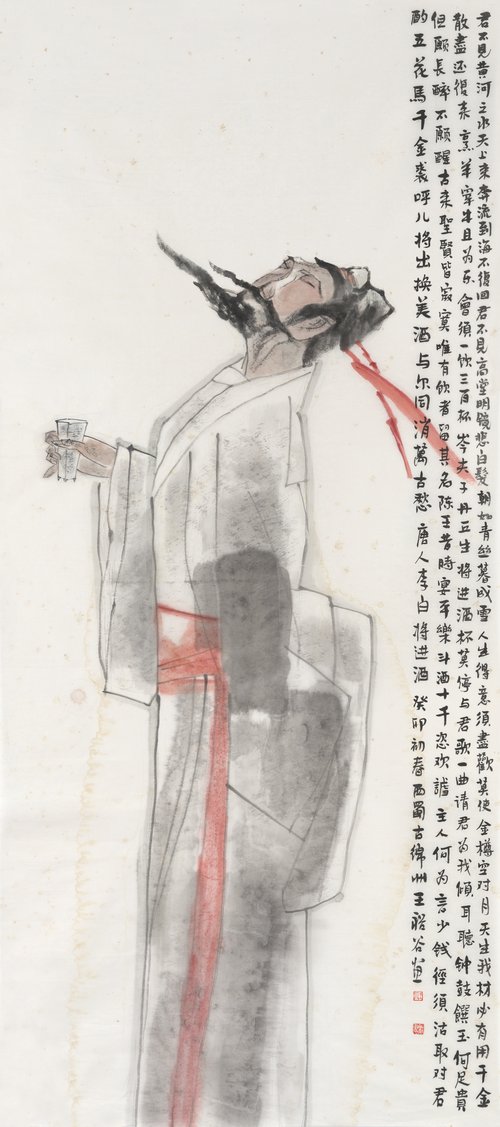 君不见黄河之水天上来奔流到海不復回君不见高堂明镜悲白髮朝如青丝暮成雪人生得意须盡歡莫使金樽空对月天生我材必有用千金
散盡还復来烹羊宰牛且为乐會須一饮三百杯岑夫子丹丘生将进酒杯莫停与君歌一曲请君为我倾耳聽钟鼓饌玉何足貴
但願長醉不願醒古来聖賢皆寂寞唯有飲者留其名陈王昔時宴平樂斗酒十千恣欢謔主人何为言少钱徑須沽取对君
酌五花馬千金裘呼儿将出换美酒与尔同消萬古愁 唐人李白将进酒 癸卯初春西蜀古绵州王谷画